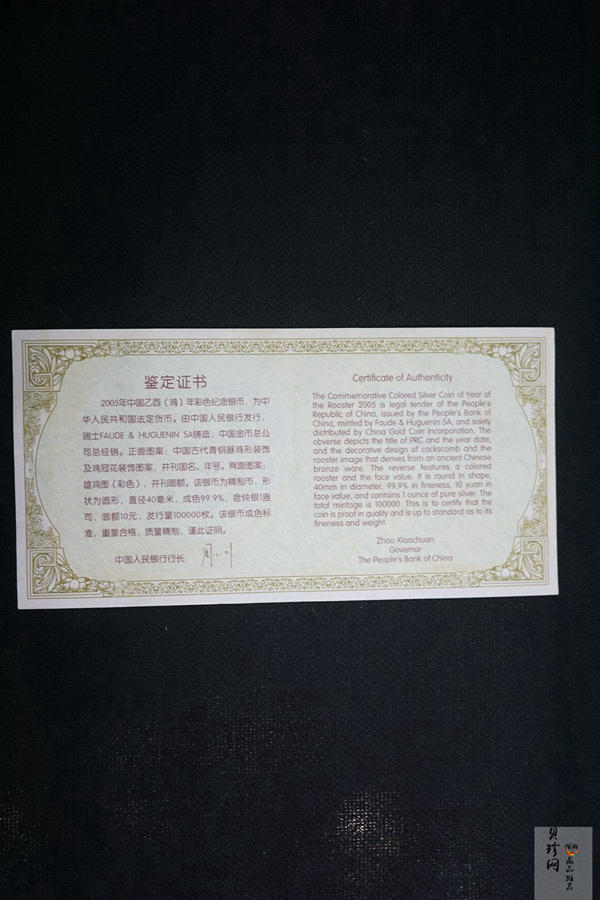 鉴定证书
2005年中国乙酉（鸡）年彩色纪念银币，为中
华人民共和国法定货币。由中国人民银行发行，
瑞士FAUDE & HUGUENIN SA铸造，中国金币总公
司总经销。正面图案：中国古代青铜器鸡形装饰
及鸡冠花装饰图案，并刊国名、年号。背面图案：
雄鸡图（彩色），并刊面额。该银币为精制币，形
状为圆形，直径40毫米，成色99.9%，含纯银1盎
司，面额10元，发行量100000枚。该银币成色标
准，重量合格，质量精制，谨此证明。
中国人民银行行长
Certificate of Authenticity
The Commemorative Colored Silver Coin of Year of
the Rooster 2005 is legal tender of the People's
Republic of China, issued by the People's Bank of
China, minted by Faude & Huguenin SA, and solely
distributed by China Gold Coin Incorporation. The
obverse depicts the title of PRC and the year date,
and the decorative design of cockscomb and the
rooster image that derives from an ancient Chinese
bronze ware. The reverse features a colored
rooster and the face value. It is round in shape,
40mm in diameter, 99.9% in fineness, 10 yuan in
face value, and contains 1 ounce of pure silver. The
total mintage is 100000. This is to certify that the
coin is proof in quality and is up to standard as to its
fineness and weight.
Zhou Xiaochuan
Governor
The People's Bank of China
贝珍网
藏品推荐